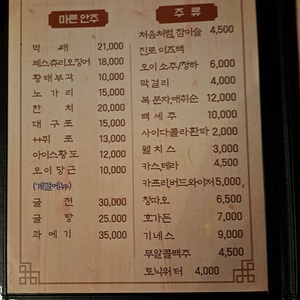 마른안주
먹 태 21,000
페스츄리오징어 18,000
황태부각 10,000
노 가 리 15,000
한 치 20,000
대 구 포 15,000
쥐 포 13,000
아이스황도 12,000
오이당근 10,000
(계절메뉴)
굴 전 30,000
굴 탕 25,000
과 메 기 35,000
주 류
처음처럼,참이슬 4,500
진로이즈백
오이소주/청하 6,000
막걸리 4,000
복분자,매취순 12,000
백 세 주 10,000
사이다콜라환타 2,000
웰 치 스 3,000
카스,테라 4,500
카프리버드와이저 5,000,
칭따오 6,500
호가든 7,000
기네스 9,000
무알콜맥주 4,500
토닉워터 4,000